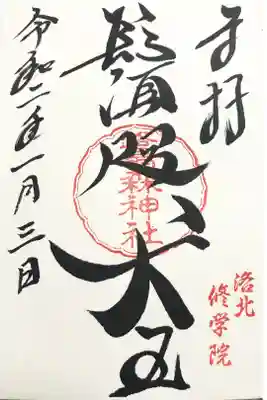 奉拝
洛北
修学院
鬚咫天王
鷺森神社
令和二年一月三日